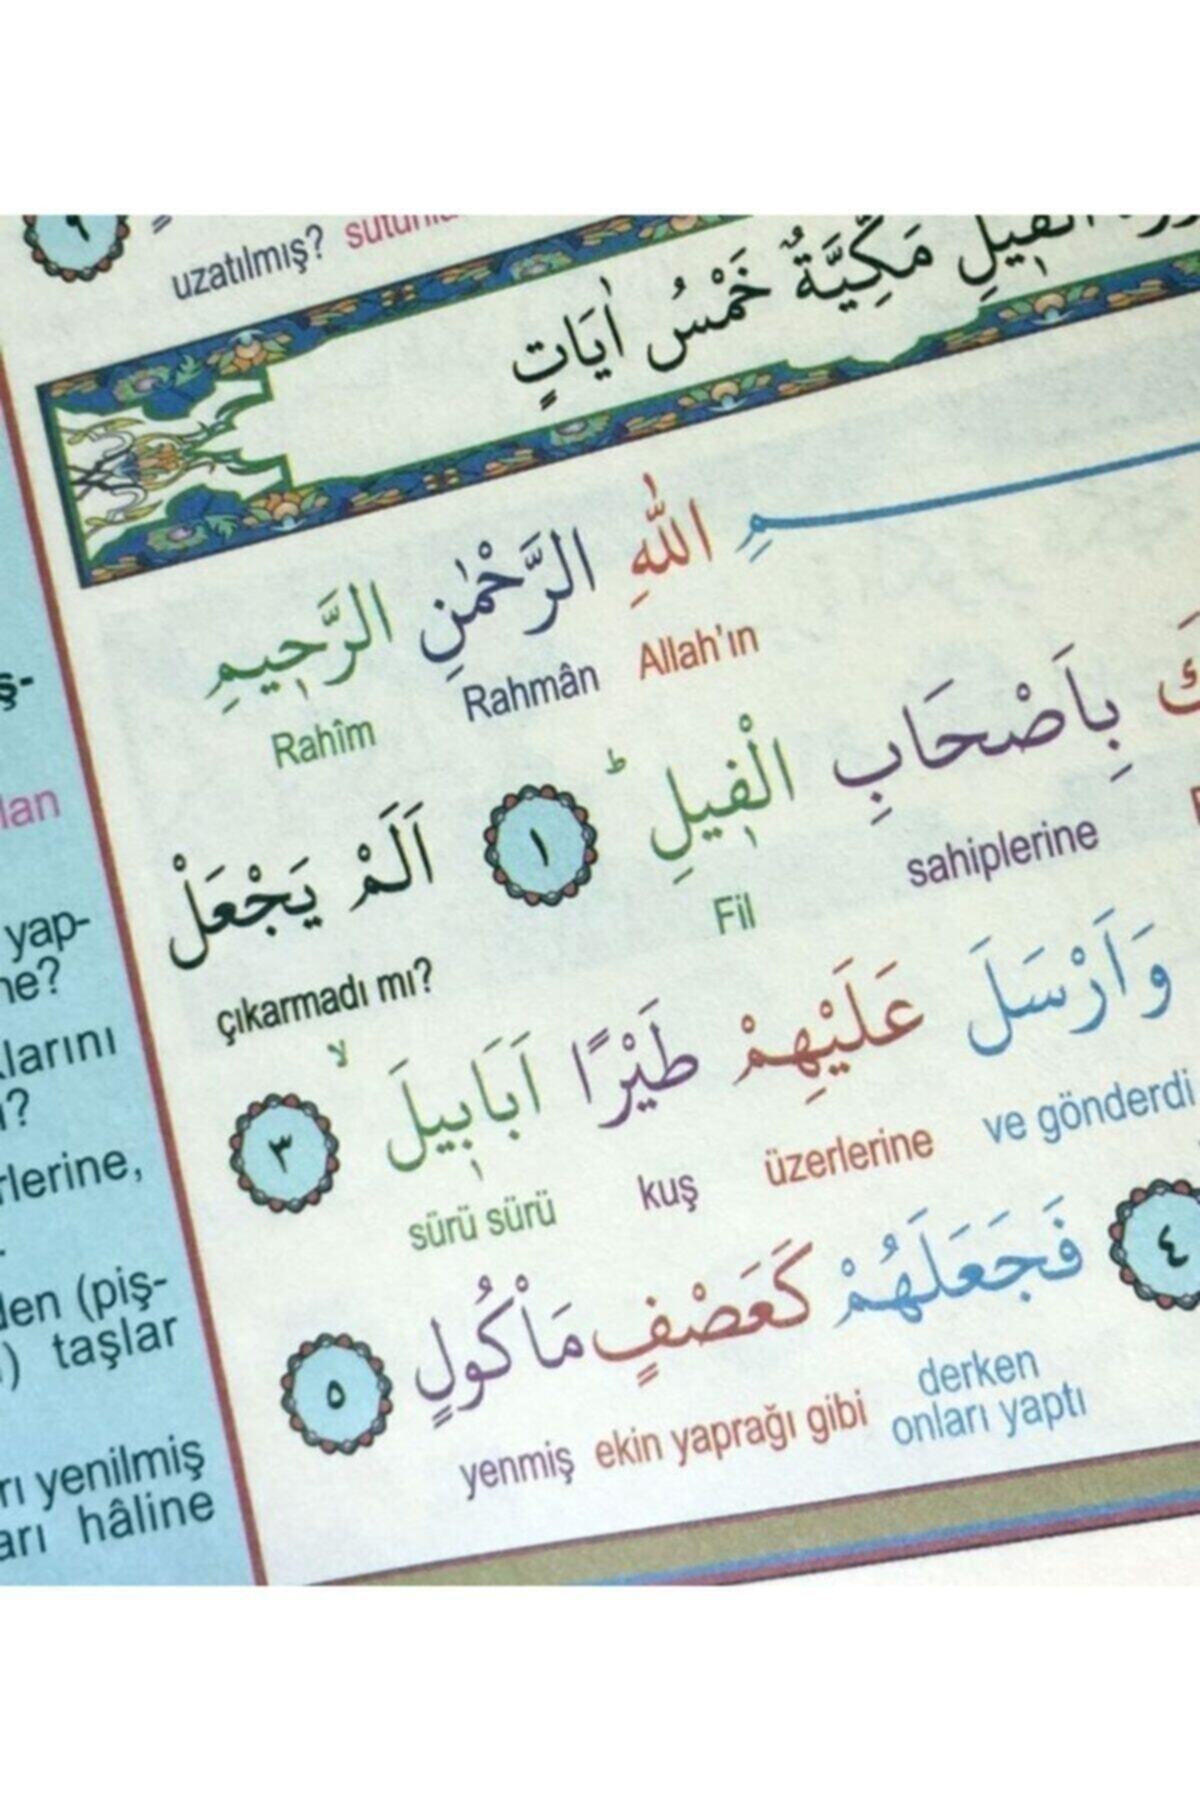 ٩
uzatılmış?
الْفِيلِ مَكِّيَّةٌ خَمْسُ اٰيَاتٍ
اللّٰهِ الرَّحْمٰنِ الرَّحِيمِ
Allah'ın Rahmân Rahîm
بِاَصْحَابِ الْفِيلِ ط ١ اَلَمْ يَجْعَلْ
sahiplerine Fil çıkarmadı mı?
وَاَرْسَلَ عَلَيْهِمْ طَيْرًا اَبَابِيلَ لا ٣
ve gönderdi üzerlerine kuş sürü sürü
٤ فَجَعَلَهُمْ كَعَصْفٍ مَأْكُولٍ ٥
derken
onları yaptı ekin yaprağı gibi yenmiş
yap-
taşlar
yenilmiş
hâline